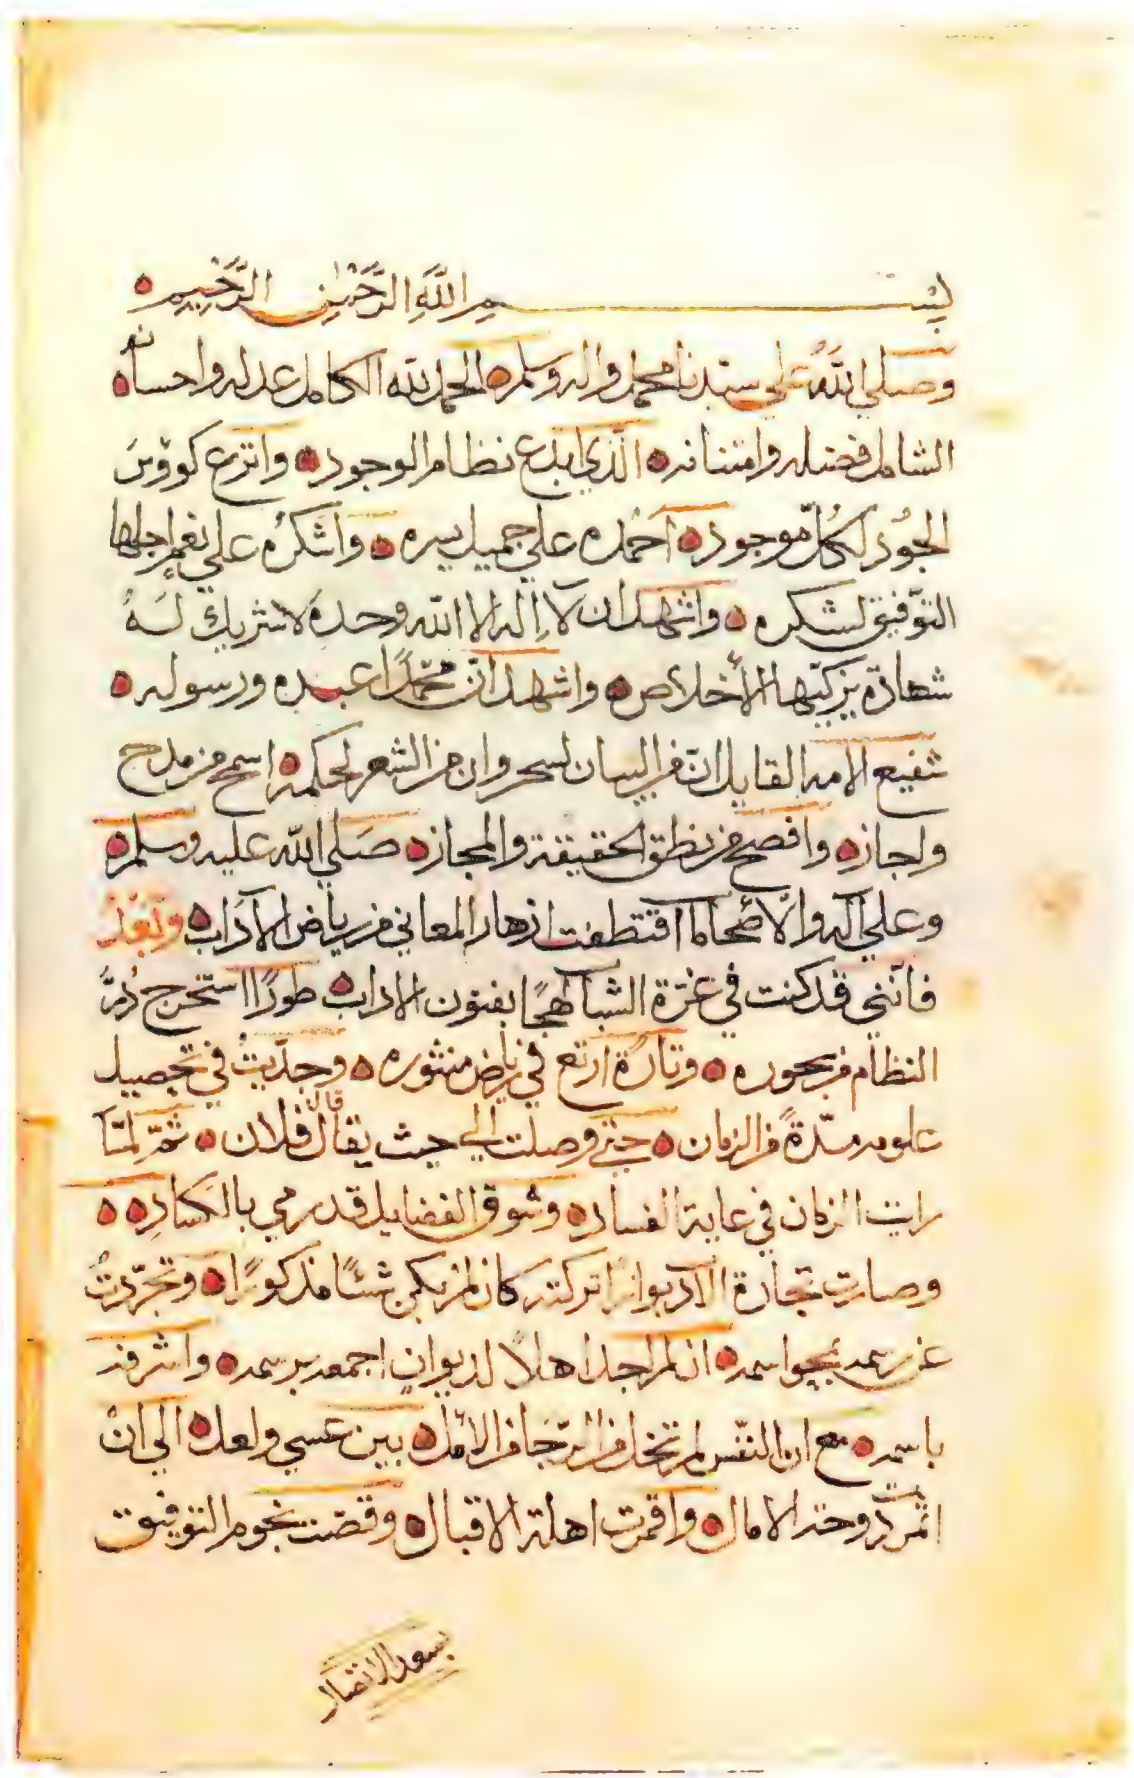 بسم الله الرحمن الرحيم ه
وصلى الله على سيدنا محمد واله وسلم ه الحمد لله الكامل عدله واحسانه ه
الشامل فضله وامتنانه ه الذي ابدع نظام الوجود ه واترع كووس
الجود لكل موجود ه احمده على جميل بره ه واشكره على نعم اجلها
التوفيق لشكره ه واشهد ان لا اله الا الله وحده لا شريك له
شهادة يزكيها الأخلاص ه واشهد ان محمدا عبده ورسوله ه
شفيع الامه القايل ان من البيان لسحر وان من الشعر لحكمه ه اسمح من مدح
واجاز ه وافصح من نطق الحقيقة والمجاز ه صلى الله عليه وسلم ه
وعلى آله والأصحاب ما اقتطفت ازهار المعاني من رياض الآداب ه وبعد
فانني قد كنت في غرة الشباب لهجا بفنون الاداب ه طورا استخرج در
النظام من بحوره ه وتارة ارتع في رياض منثوره ه وجديت في تحصيل
علومه مدة من الزمان ه حتى وصلت الى حيث يقال قال فلان ه ثم لما
رايت الزمان في غاية الفساد ه وسوق الفضايل قد رمي بالكساد ه ه
وصارت تجارة الآدب بوارا تركته كان لم يكن شئا مذكورا ه وتجردت
عن رسمه بمحو اسمه ه اذ لم اجد اهلا لديوان اجمعه برسمه ه واشرفه
باسمه ه مع ان النفس لم تخل من الرجا من الامل ه بين عسى ولعل ه الى ان
اثمرت دوحة الامال ه واقمرت اهلة الاقبال ه وقضت نجوم التوفيق
بسعد الانتصار